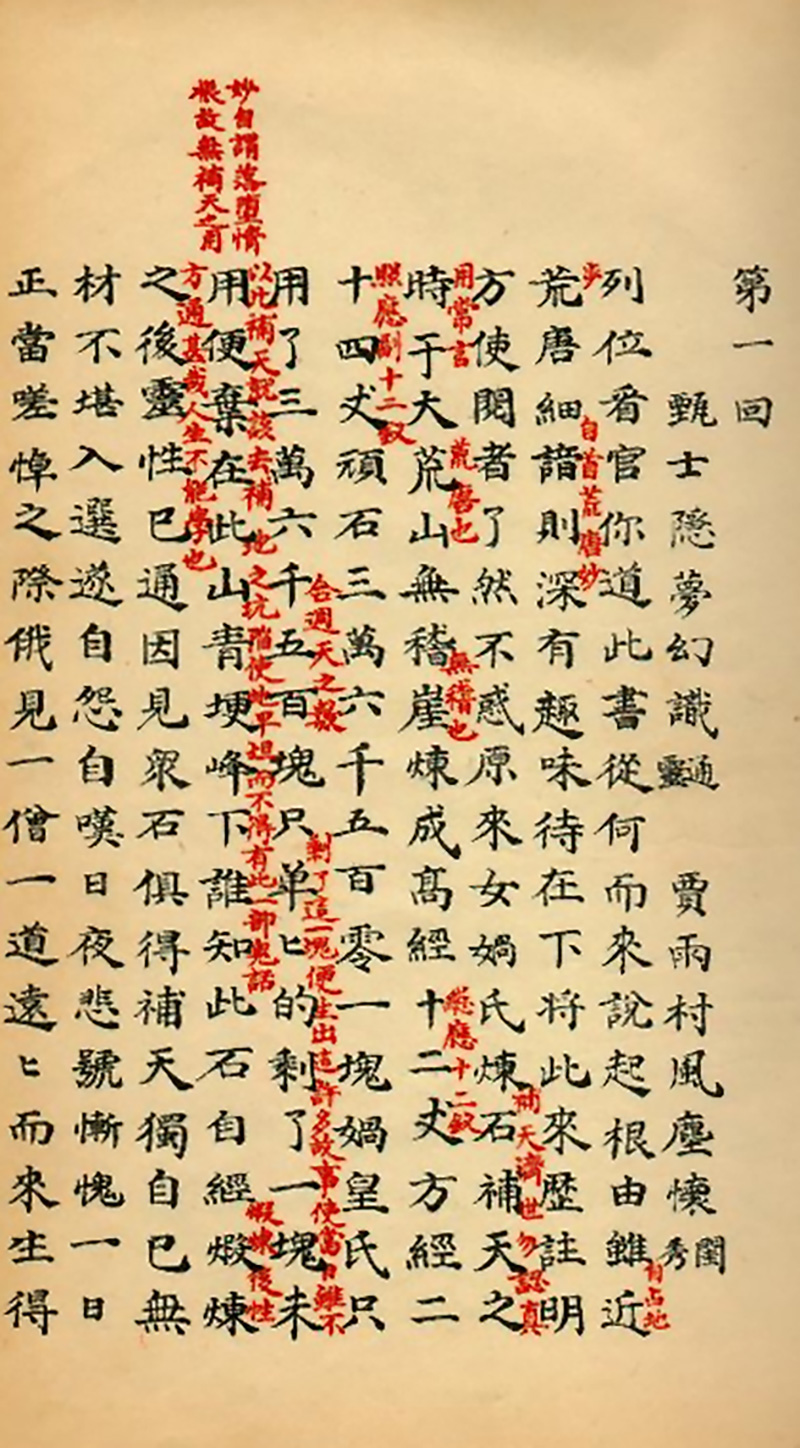 第一回
甄士隱夢幻識通靈 賈雨村風塵懷閨秀
列位看官你道此書從何而來說起根由雖近
有占地
步
自首荒唐妙
荒唐細諳則深有趣味待在下將此來歷註明
補天濟世勿認真
方使閱者了然不惑原來女媧氏煉石補天之
用常言
荒唐也
無稽也
總應十二釵
時于大荒山無稽崖煉成髙經十二丈方經二
照應副十二釵
十四丈頑石三萬六千五百零一塊媧皇氏只
合週天之數
剩了這一塊便生出這許多故事使當日雖不
用了三萬六千五百塊只单匕的剩了一塊未
以此補天說該去補地之坑陷使地平坦而不得有此一部鬼話
煅煉後性
用便棄在此山青埂峰下誰知此石自經煅煉
方通甚哉人生不能學也
妙自謂落墮情
根故無補天之用
之後靈性已通因見衆石俱得補天獨自己無
材不堪入選遂自怨自嘆日夜悲號慚愧一日
正當嗟悼之際俄見一僧一道遠匕而來生得